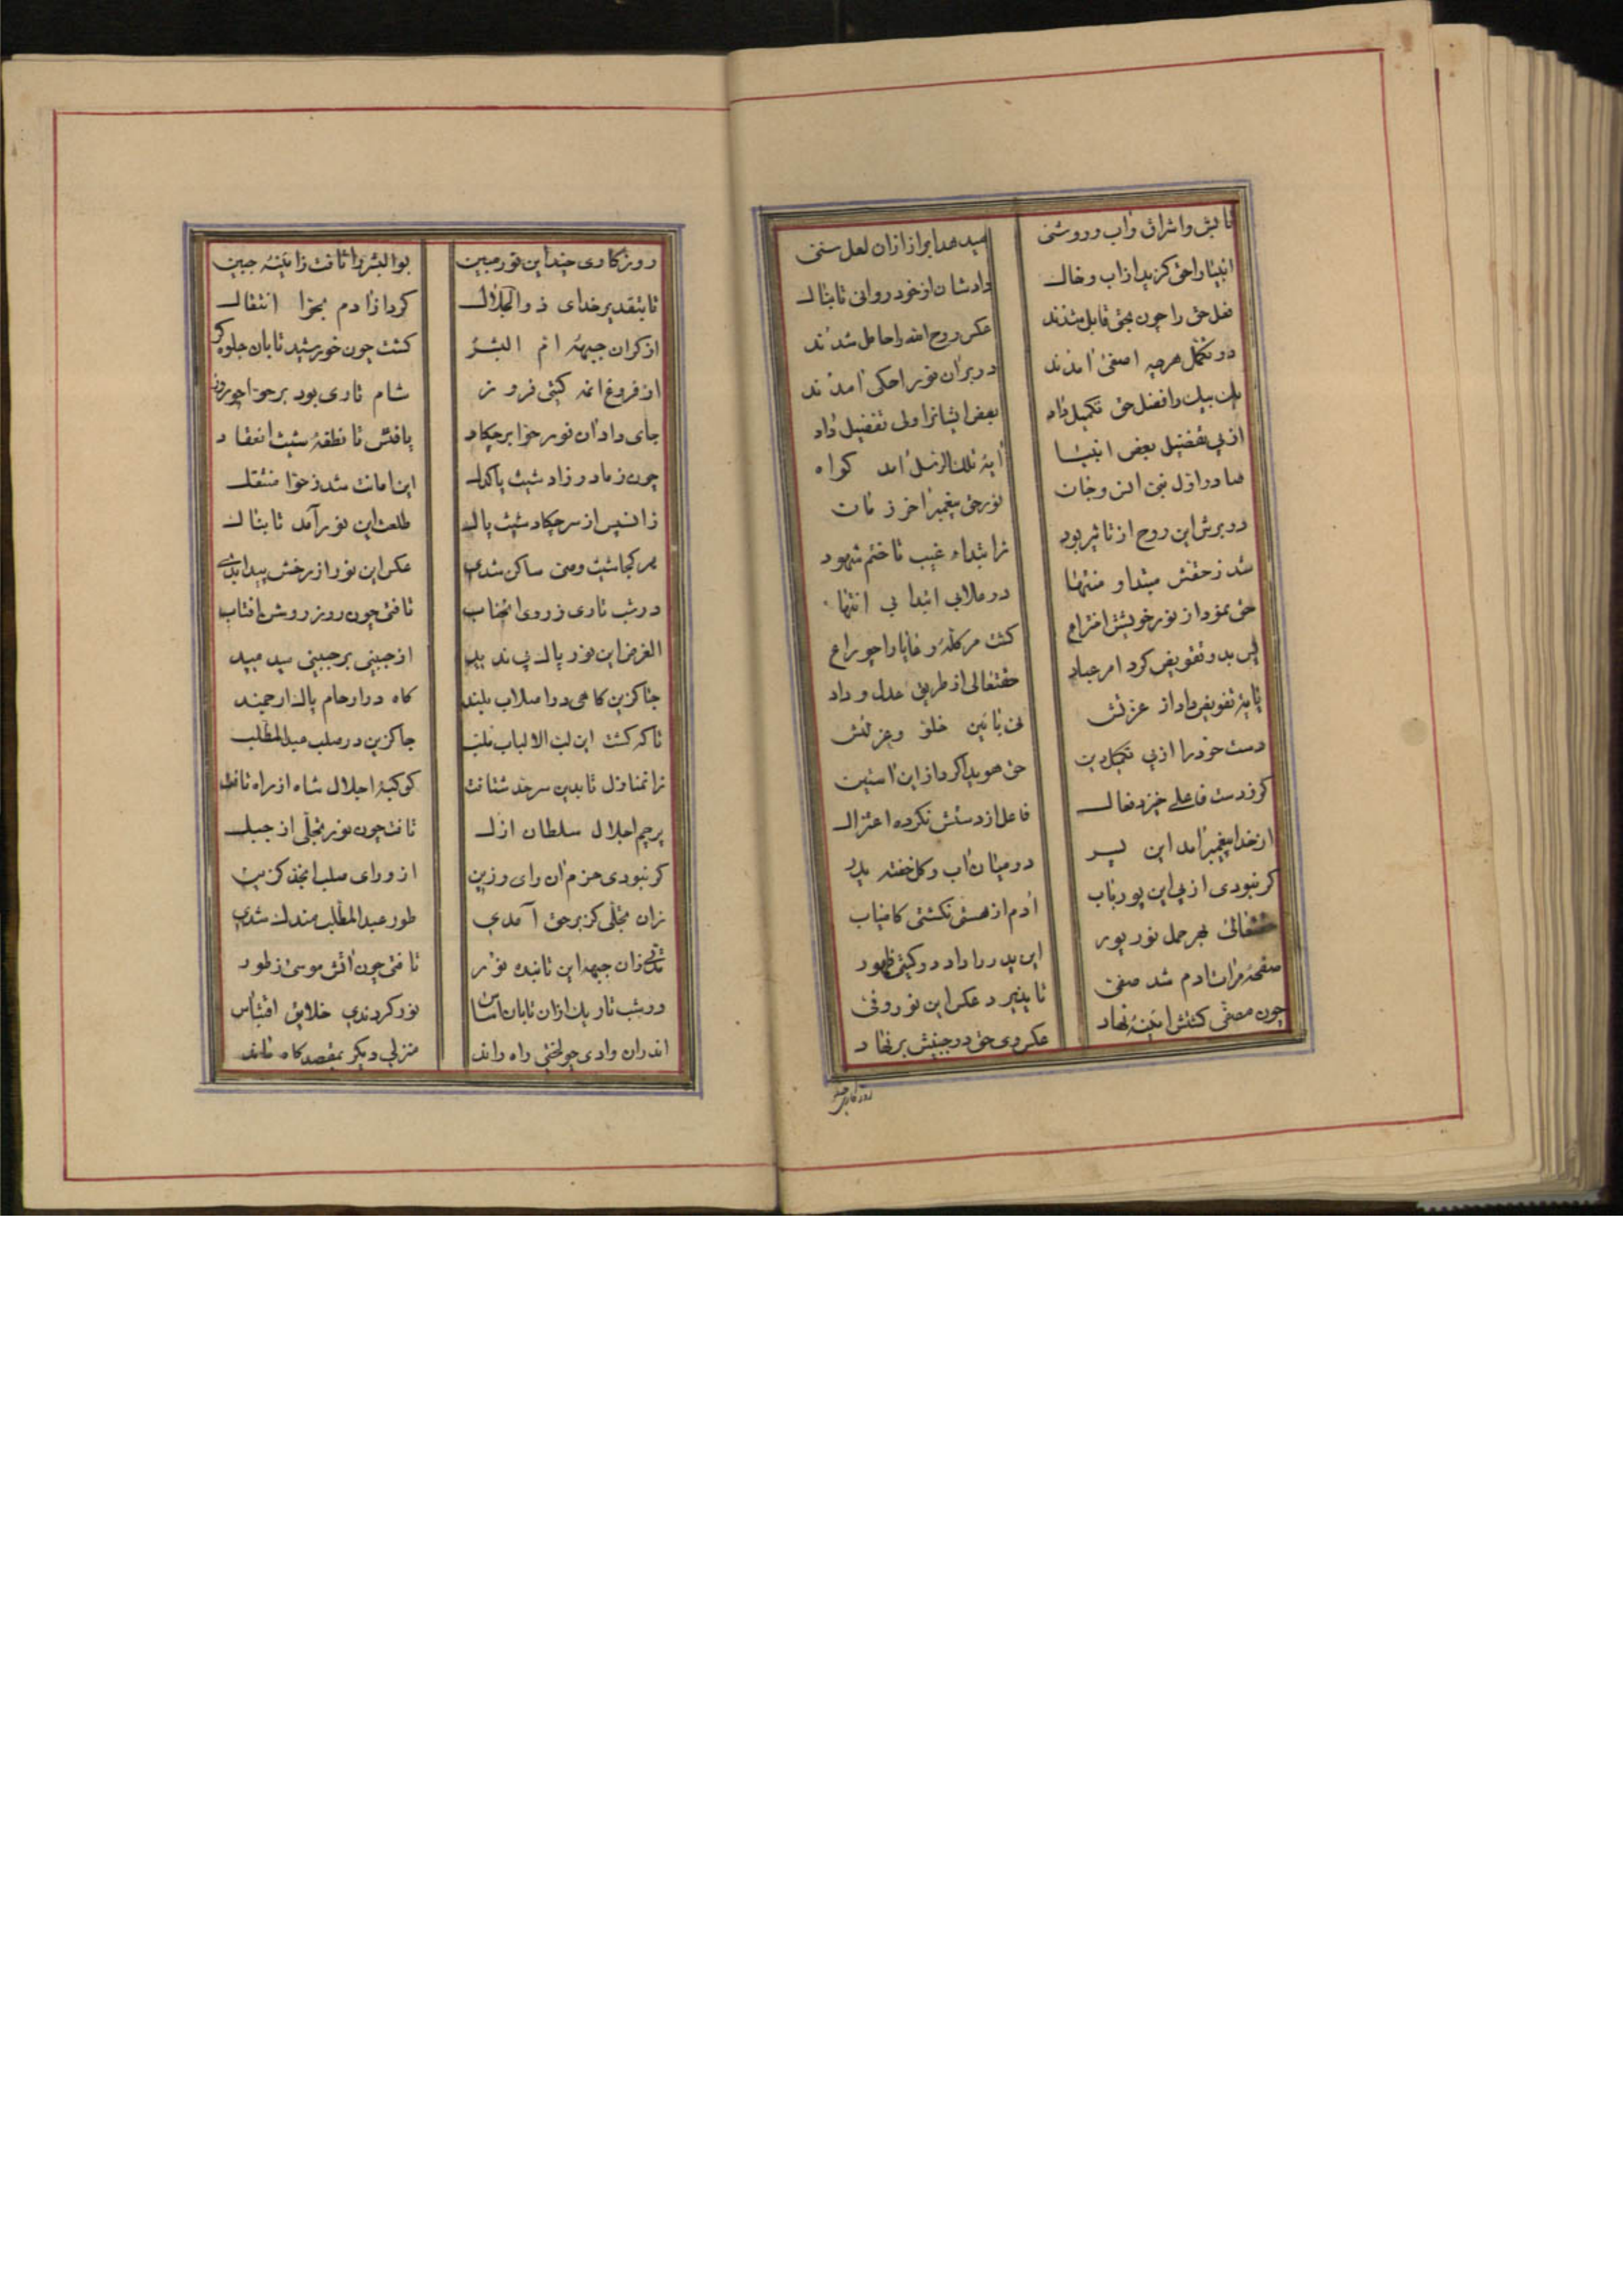 تابش و اشراق و آب و روشنی	میدهد ابراز ازان لعل سنی
انبیا را حق گزید از آب و خاک	دادشان از خود روانی تابناک
فعل حق را چون بحق قابل شدند	عکس روح الله را حامل شدند
در تکمل هرچه اصفی آمدند	در بر آن نور احکی آمدند
یک بیک را فضل حق تکمیل داد	بعض ایشانرا ولی تفضیل داد
از پی تفضیل بعض انبیا	آیهٔ تلک الرسل آمد گواه
صادر اول نبی انس و جان	نور حق پیغمبر آخر زمان
در برش این روح از تاثیر بود	ز ابتداء غیب تا ختم شهود
شد ز حقش مبتدا و منتها	در علا بی ابتدا بی انتها
حق نمود از نور خویش اختراع	گشت مر گلهٔ رعایا را چو راع
پس بدو تفویض کرد امر عباد	حقتعالی از طریق عدل و داد
پایهٔ تفویض داد از عزلتش	نی باین خلق و عزلتش
دست خود را از پی تکمیل دین	حق هویدا کرد از این آستین
کو ز دست فاعلی خیزد فعال	فاعل از دستش نکرده اعتزال
از خدا پیغمبر آمد این پسر	در میان آب و گل خفته پدر
گر نبودی از پی این پور ناب	آدم از هستی نگشتی کامیاب
حقتعالی بهر حمل نور پور	این پدر را داد در گیتی ظهور
صفحهٔ مرآت آدم شد صفی	تا پذیرد عکس این نور وفی
چون مصفی گشتش آینهٔ نهاد	عکس وی حق در جبینش برنهاد
روزگاری چند
روزگاری چند این نور مبین	بوالبشر را تافت ز آینهٔ جبین
تا بتقدیر خدای ذوالجلال	کرد از آدم بحوا انتقال
از کران جبههٔ ام البشر	گشت چون خورشید تابان جلوه گر
از فروغ آنمه گیتی فروز	شام تاری بود بر حوا چو روز
جای داد آن نور حوا بر چکاد	یافتش تا نطفهٔ شیث انعقاد
چون ز مادر زاد شیث پاکدل	این امانت شد ز حوا منتقل
زانپس از سر چکاد شیث پاک	طلعت این نور آمد تابناک
هر کجا شیث وصی ساکن شدی	عکس این نور از رخش پیدا بدی
در شب تاری ز روی آنجناب	تافتی چون روز روشن آفتاب
الغرض این نور پاک بی ندید	از جبینی بر جبینی میدمید
جا گزین گاهی در اصلاب بلند	گاه در ارحام پاک ارجمند
تا که گشت این لب الالباب	جاگزین در صلب عبدالمطلب
زانمنازل تا بدین سرحد شتافت	کوکبهٔ اجلال شاه از راه تافت
پرچم اجلال سلطان ازل	تافت چون نور تجلی از جبل
گر نبودی حزم آن رای رزین	از ورای صلب آنجد گزین
زان تجلی کز بر حق آمدی	طور عبدالمطلب مندک شدی
زان جبهه این تابنده نور	تافتی چون آتش موسی ز طور
در شب تاریک ازان تابان اساس	نور کردندی خلایق اقتباس
اندران وادی چو لختی راه راند	منزلی دیگر بمقصدگاه ماند